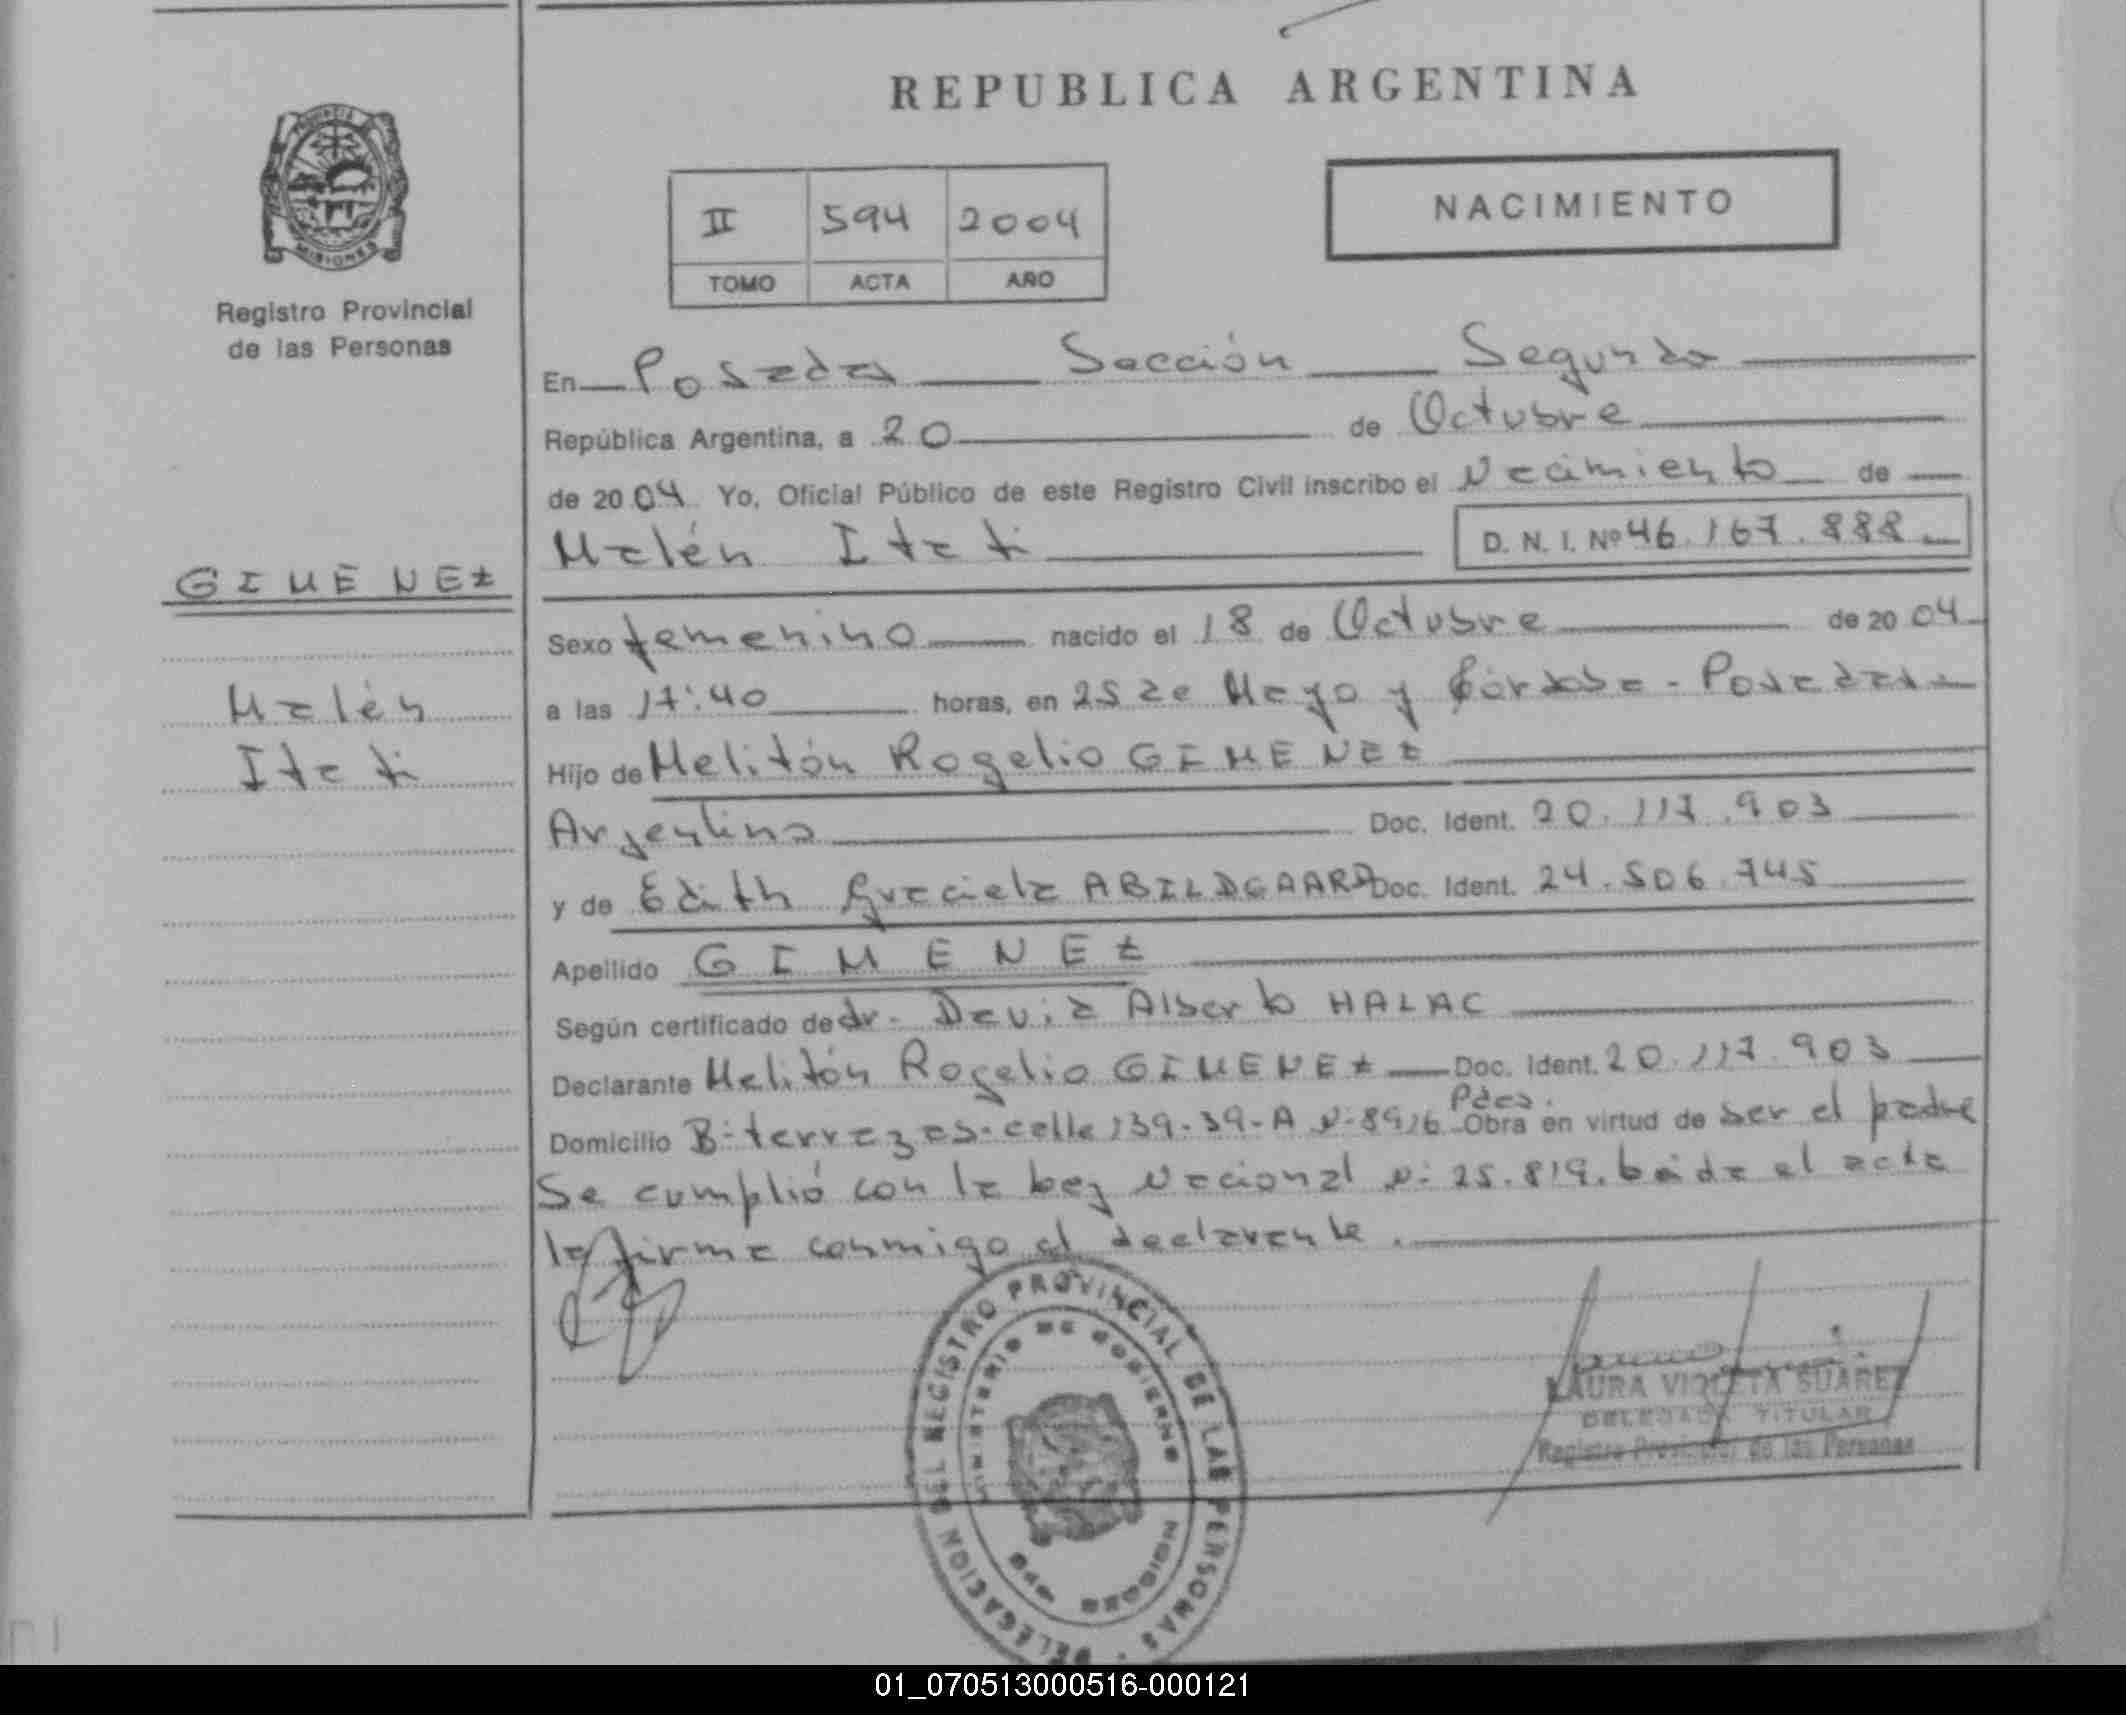 REPUBLICA ARGENTINA
NACIMIENTO
II 594 2004
TOMO ACTA AÑO
PROVINCIA DE
MISIONES
Registro Provincial
de las Personas
GIMENEZ
Malén
Itatí
En Posadas Sección Segunda
República Argentina, a 20 de Octubre
de 2004. Yo, Oficial Público de este Registro Civil inscribo el Nacimiento de
Malén Itatí D. N. I. Nº 46.167.888
Sexo femenino nacido el 18 de Octubre de 2004
a las 17:40 horas, en 25 de Mayo y Córdoba - Posadas
Hijo de Melitón Rogelio GIMENEZ
Argentino Doc. Ident. 20.117.903
y de Edith Graciela ABILDGAARD Doc. Ident. 24.506.745
Apellido GIMENEZ
Según certificado de dr. David Alberto HALAC
Declarante Melitón Rogelio GIMENEZ Doc. Ident. 20.117.903
Domicilio B: terrazas-calle 139-39-A N: 8916 Pdas. Obra en virtud de ser el padre
Se cumplió con la Ley Nacional N: 25.819. Leída el acta
la firma conmigo el declarante.
DELEGACION DEL REGISTRO PROVINCIAL DE LAS PERSONAS
MINISTERIO DE GOBIERNO
LAURA VIOLETA SUAREZ
DELEGADA TITULAR
Registro Provincial de las Personas
01_070513000516-000121